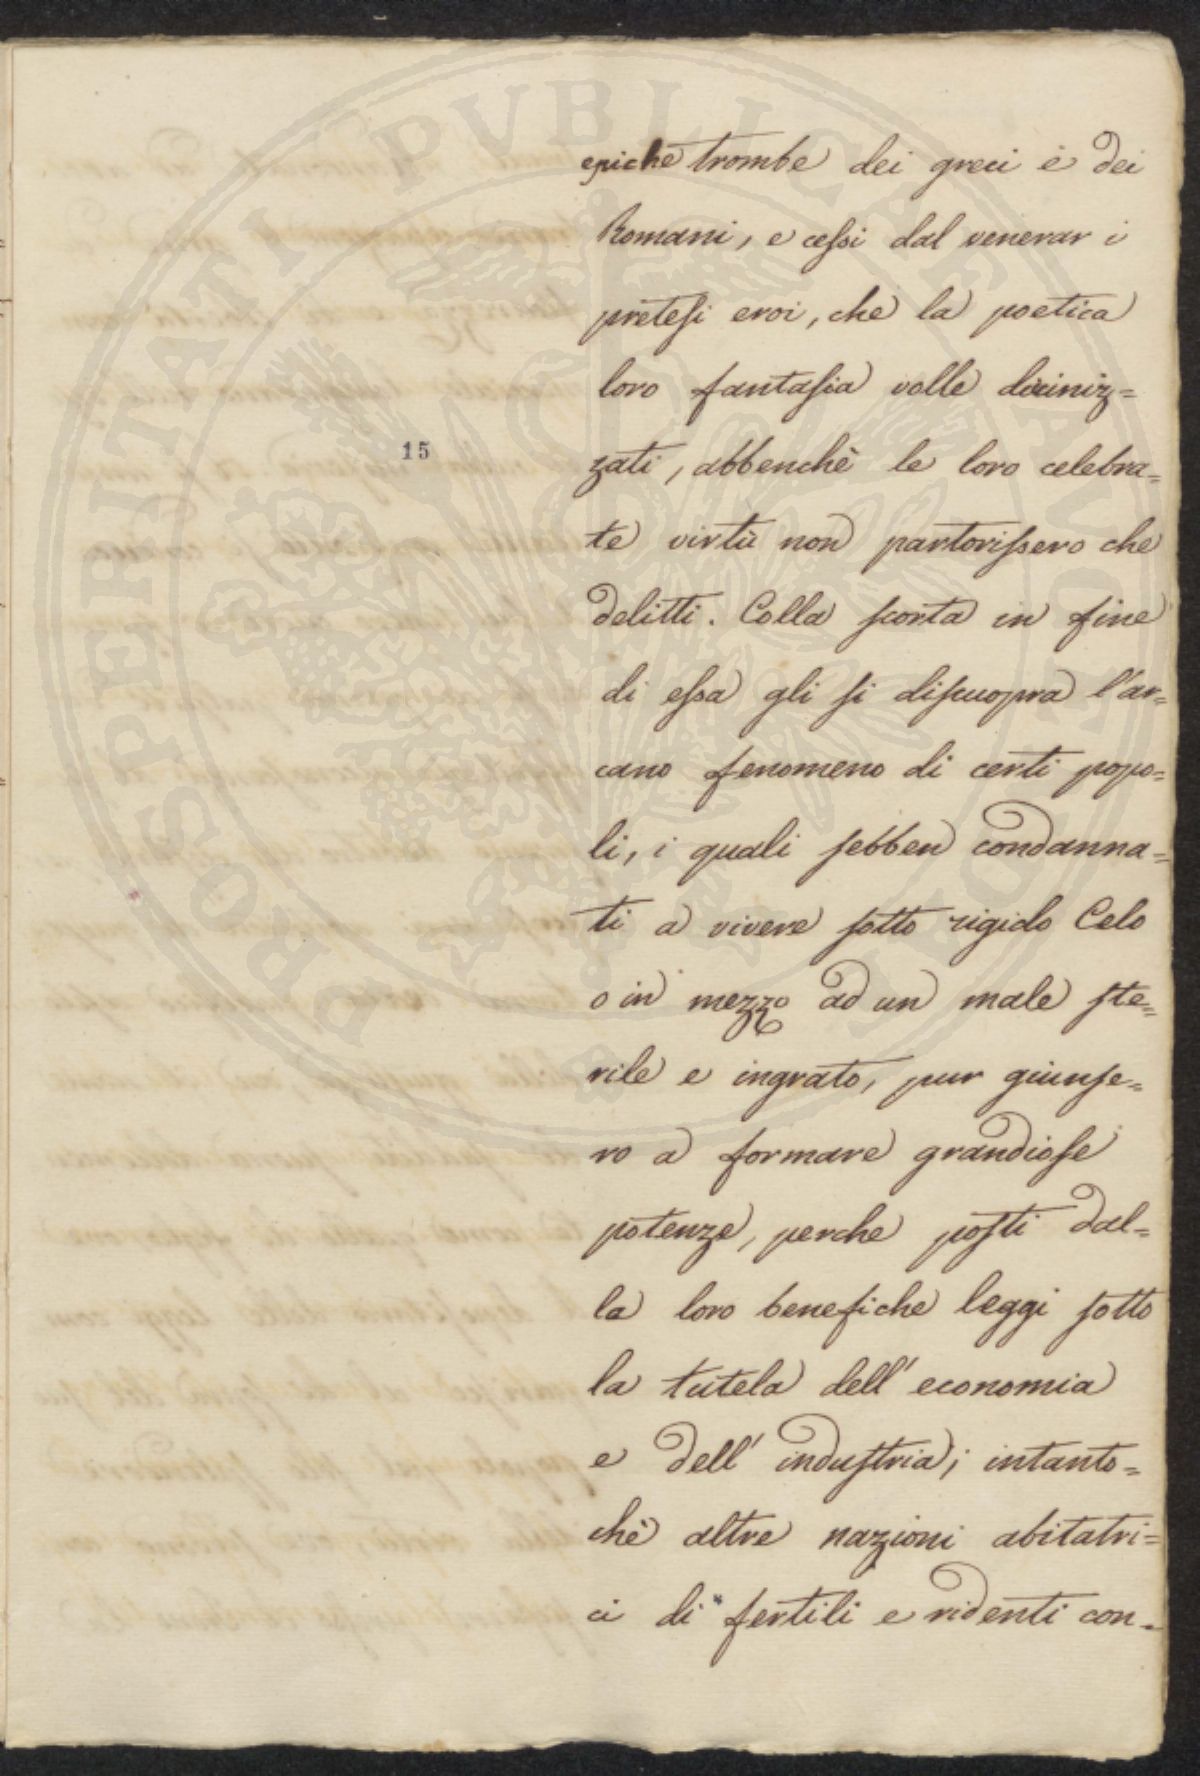 epiche trombe dei greci e dei
Romani, e cessi dal venerar i
pretesi eroi, che la poetica
loro fantasia volle diviniz=
15
zati, abbenchè le loro celebra=
te virtù non partorissero che
delitti. Colla scorta in fine
di essa gli si discuopra l'ar=
cano fenomeno di certi popo=
li, i quali sebben condanna=
ti a vivere sotto rigido Celo
o in mezzo ad un male ste=
rile e ingrato, pur giunse=
ro a formare grandiose
potenze, perche posti dal=
la loro benefiche leggi sotto
la tutela dell' economia
e dell' industria; intanto=
chè altre nazioni abitatri=
ci di fertili e ridenti con=
PROSPERITATI PVBLICAE AVGENDAE